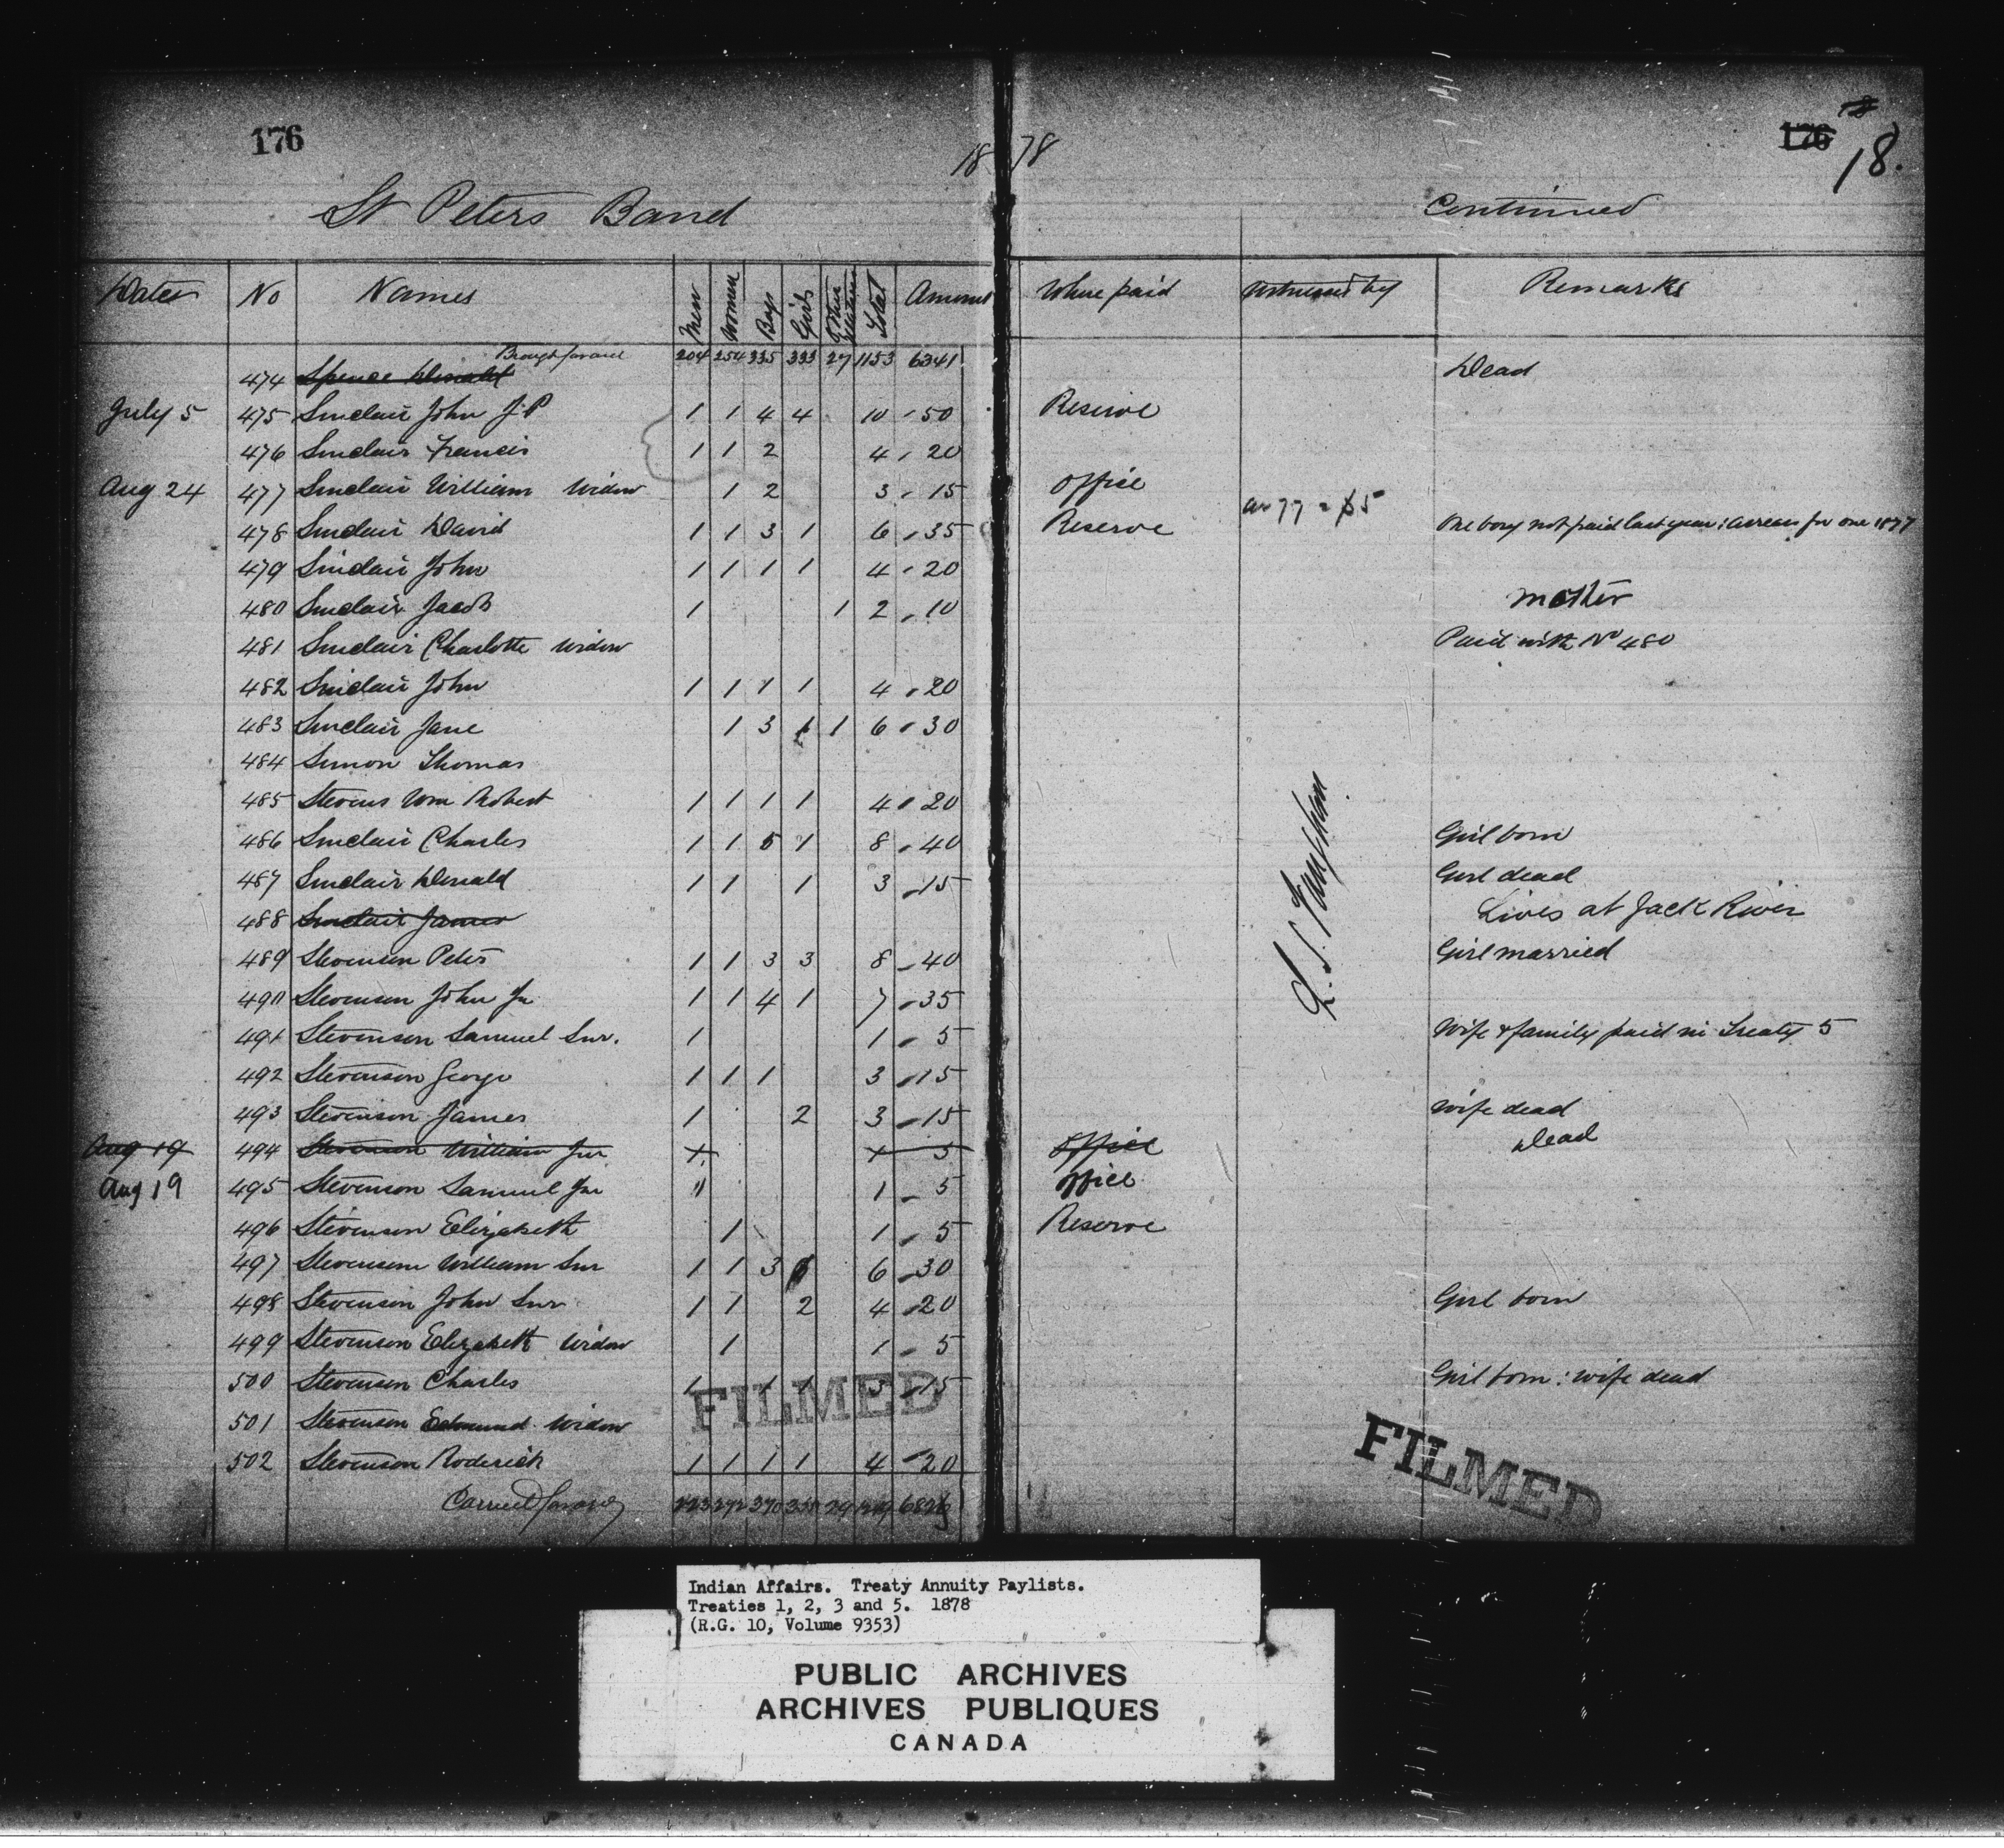 176
18 78
176 18.
St Peters Band
Continued
Dates No Names Men Women Boys Girls Other Relations Total Amount Where paid Witnessed by Remarks
Brought forward 204 254 335 333 27 1153 6341
474 Spence Donald Dead
July 5 475 Sinclair John J.P 1 1 4 4 10 50 Reserve
476 Sinclair Francis 1 1 2 4 20
Aug 24 477 Sinclair William Widow 1 2 3 15 Office
478 Sinclair David 1 1 3 1 6 35 Reserve ar 77 = $5 One boy not paid last year: arrears for one 1877
479 Sinclair John 1 1 1 1 4 20
480 Sinclair Jacob 1 1 2 10 Mother
481 Sinclair Charlotte Widow Paid with No 480
482 Sinclair John 1 1 1 1 4 20
483 Sinclair Jane 1 3 1 1 6 30
484 Simon Thomas
485 Stevens Wm Robert 1 1 1 1 4 20
486 Sinclair Charles 1 1 5 1 8 40 Girl born
487 Sinclair Donald 1 1 1 3 15 Girl dead
488 Sinclair James Lives at Jack River
489 Stevenson Peter 1 1 3 3 8 40 Girl married
490 Stevenson John Jr 1 1 4 1 7 35
491 Stevenson Samuel Snr. 1 1 5 Wife & family paid in Treaty 5
492 Stevenson George 1 1 1 3 15
493 Stevenson James 1 2 3 15 Wife dead
Aug 19 494 Stevenson William Jnr 1 1 5 Office Dead
Aug 19 495 Stevenson Samuel Jnr 1 1 5 Office
496 Stevenson Elizabeth 1 1 5 Reserve
497 Stevenson William Snr 1 1 3 1 6 30
498 Stevenson John Snr 1 1 2 4 20 Girl born
499 Stevenson Elizabeth Widow 1 1 5
500 Stevenson Charles 1 1 1 3 15 Girl born: wife dead
501 Stevenson Edmund Widow
502 Stevenson Roderick 1 1 1 1 4 20
Carried forward 223 272 370 29
FILMED
FILMED
Indian Affairs. Treaty Annuity Paylists.
Treaties 1, 2, 3 and 5. 1878
(R.G. 10, Volume 9353)
PUBLIC ARCHIVES
ARCHIVES PUBLIQUES
CANADA